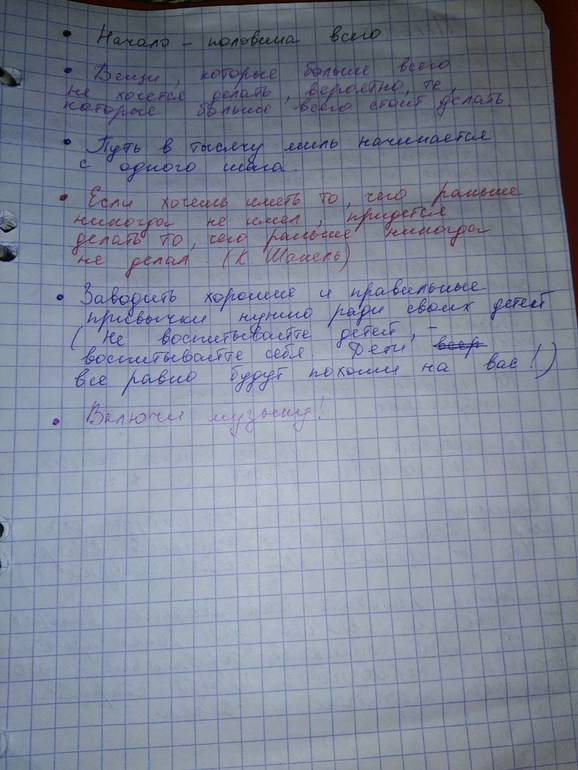 • Начало – половина всего
• Вещи, которые больше всего
не хочется делать, вероятно, те,
которые больше всего стоит делать
• Путь в тысячу миль начинается
с одного шага.
• Если хочешь иметь то, чего раньше
никогда не имел, придется
делать то, чего раньше никогда
не делал (К Шанель)
• Заводить хорошие и правильные
привычки нужно ради своих детей
(Не воспитывайте детей, –
воспитывайте себя. Дети
все равно будут похожи на вас!)
• Включи музыку!